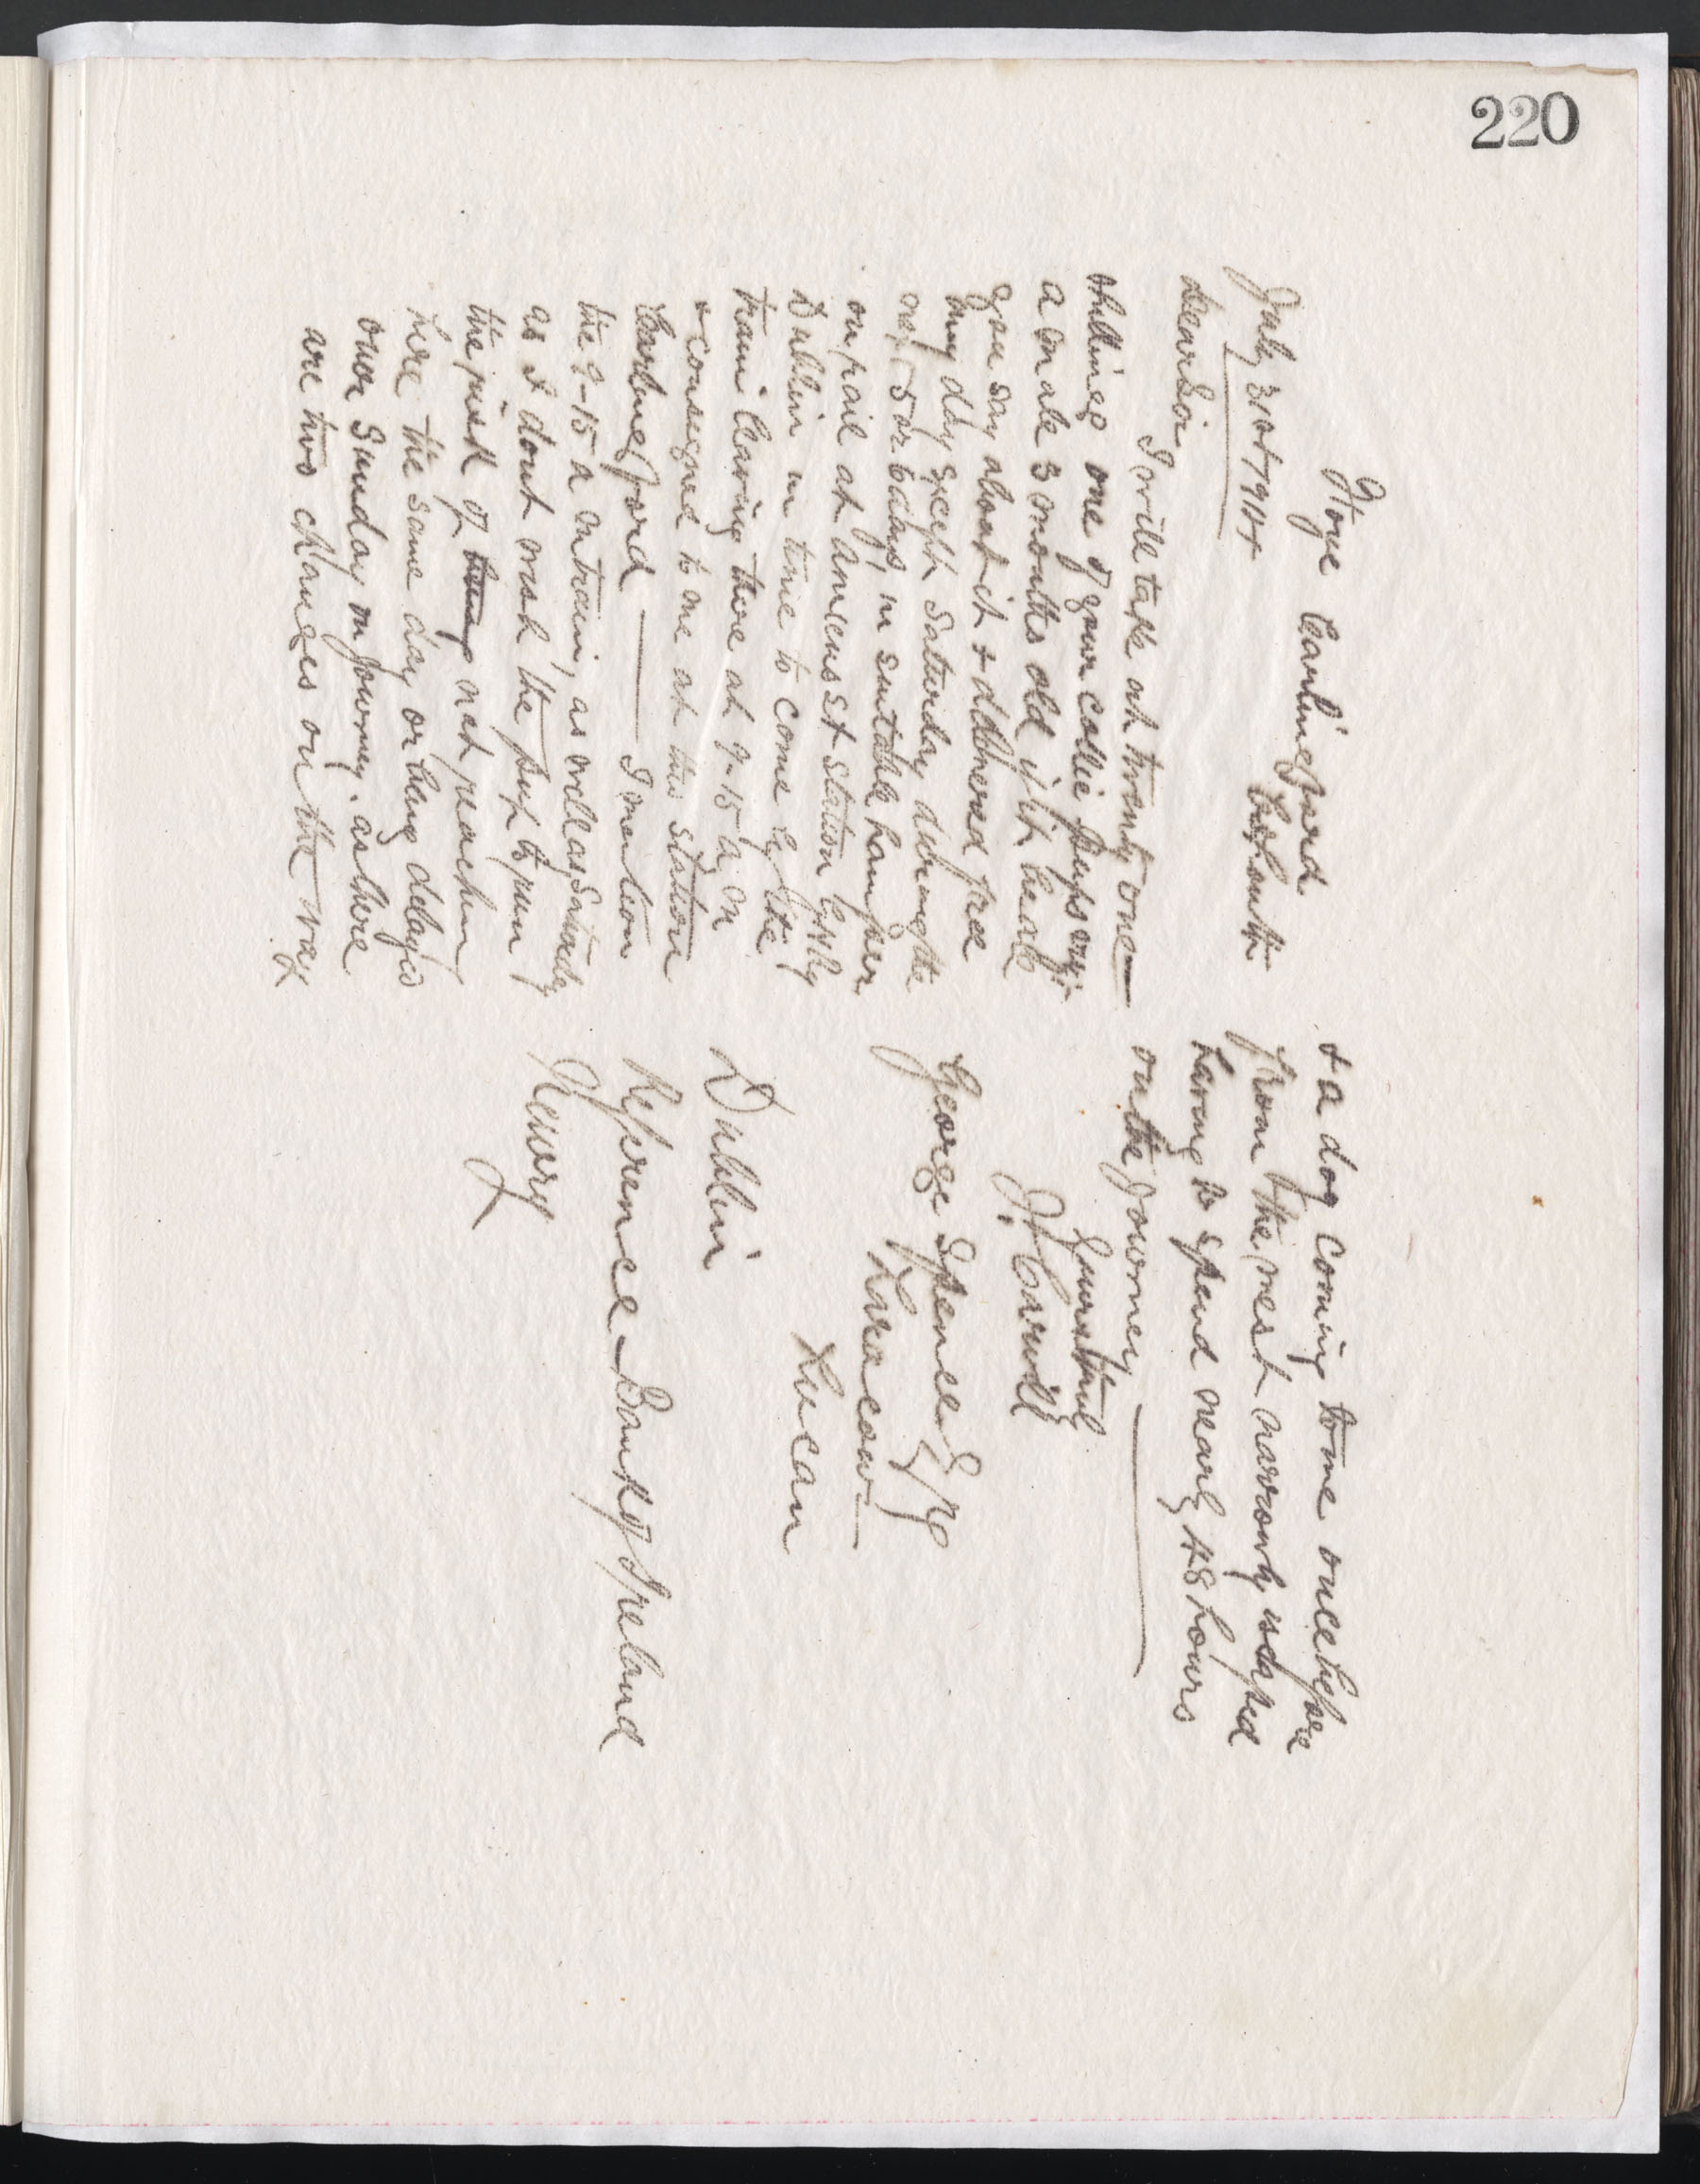 220
Grove Carlingford
Co Louth
July 31st 1914
Dear Sir
I will take at twenty one
shillings one of your collie pups viz:-
a male 3 months old if it be as
you say about it & delivered free
any day except Saturday during the
next 5 or 6 days, in suitable hamper
on rail at Amiens St Station G.N.Ry
Dublin in time to come by the
train leaving there at 9-15 a.m
& consigned to me at this station
Carlingford — I mention
the 9-15 a m train, as well as Saturday
as I dont wish the pup to run
the risk of being not reaching
here the same day or being delayed
over Sunday on journey. as there
are two changes on the way
& a dog coming to me once before
from the west narrowly escaped
having to spend nearly 48 hours
on the journey —
Yours truly
George Spence Esqr
Laracon —
Lucan
Dublin
Refrence — Bank of Ireland
Newry